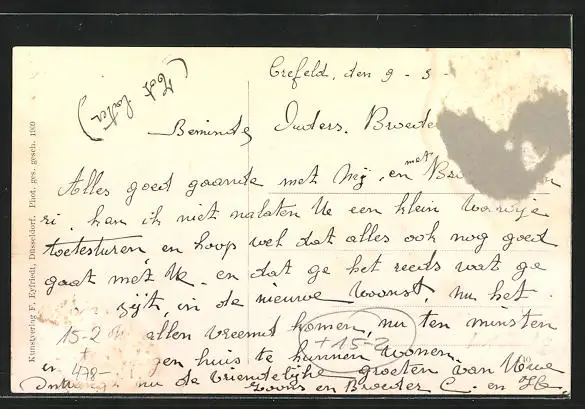 Crefeld, den 9 - 3 -
(Tot later)
Beminde Ouders. Broeder
Alles goed gaande met Mij, en met
kan ik niet nalaten Ue een klein woordje
toetesturen en hoop wel dat alles ook nog goed
gaat met Ue. en dat ge het reeds wat ge
zijt, in de nieuwe woonst, nu het
15-2 allen vreemd komen, nu ten minsten
+15-2
eigen huis te kunnen wonen.
478-
nu de vriendelijke groeten van Uwe
Zoons en Broeder C. en H.
Kunstverlag F. Eyfriedt, Düsseldorf. Phot. ges. gesch. 1909